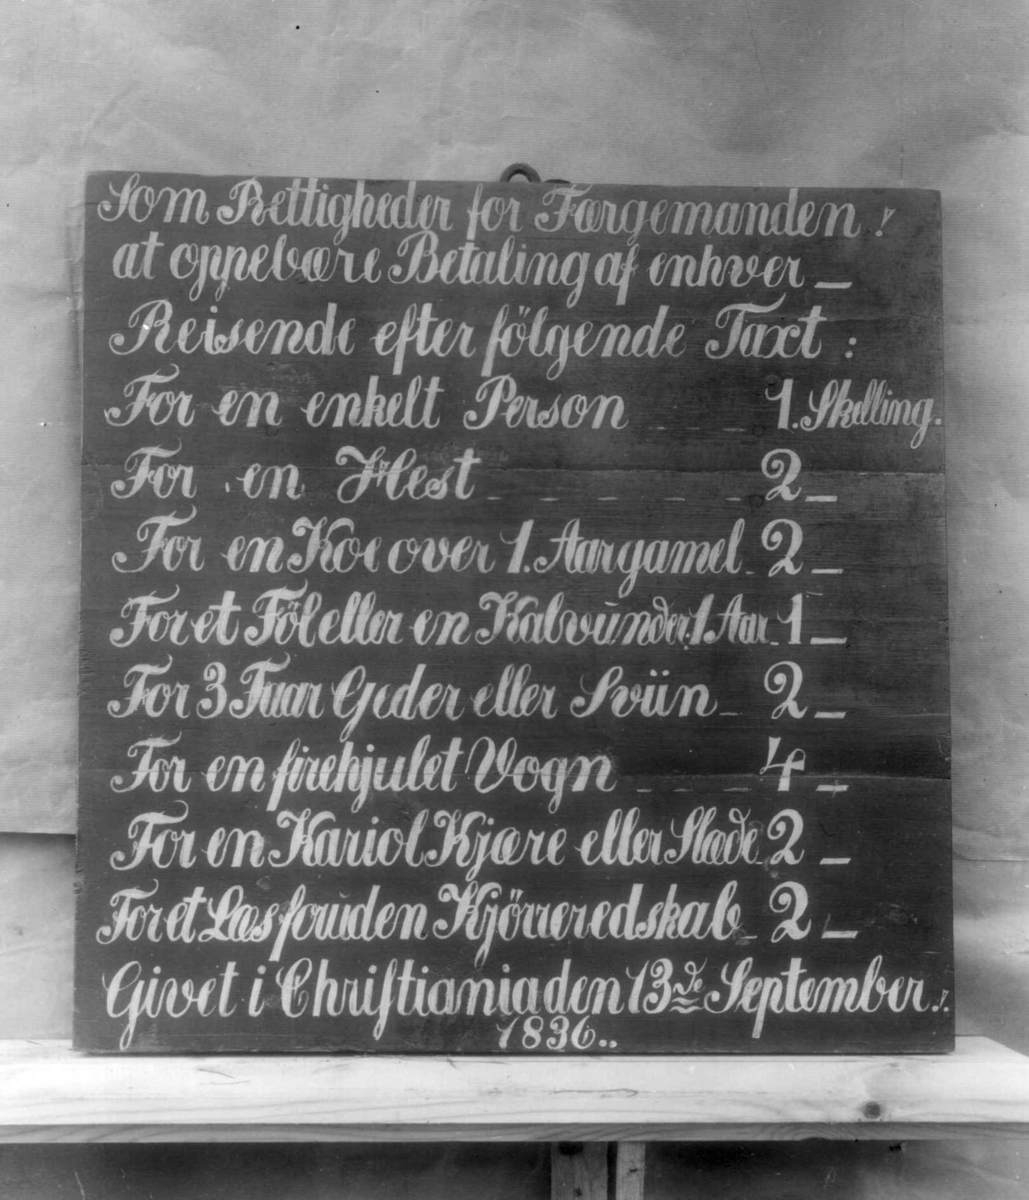 Som Rettigheder for Færgemanden !
at oppebære Betaling af enhver _
Reisende efter fölgende Taxt :
For en enkelt Person _ _ _ 1. Skelling.
For en Hest _ _ _ _ _ _ _ 2 _
For en Koe over 1. Aar gamel _ 2 _
For et Föl eller en Kalv ŭnder 1 Aar _ 1 _
For 3 Faar Geder eller Sviin _ 2 _
For en firehjulet Vogn _ _ _ _ 4 _
For en Kariol Kjære eller Slæde 2 _
For et Læs foruden Kjörreredskab _ 2 _
Givet i Chriſtiania den 13de September.
1836..